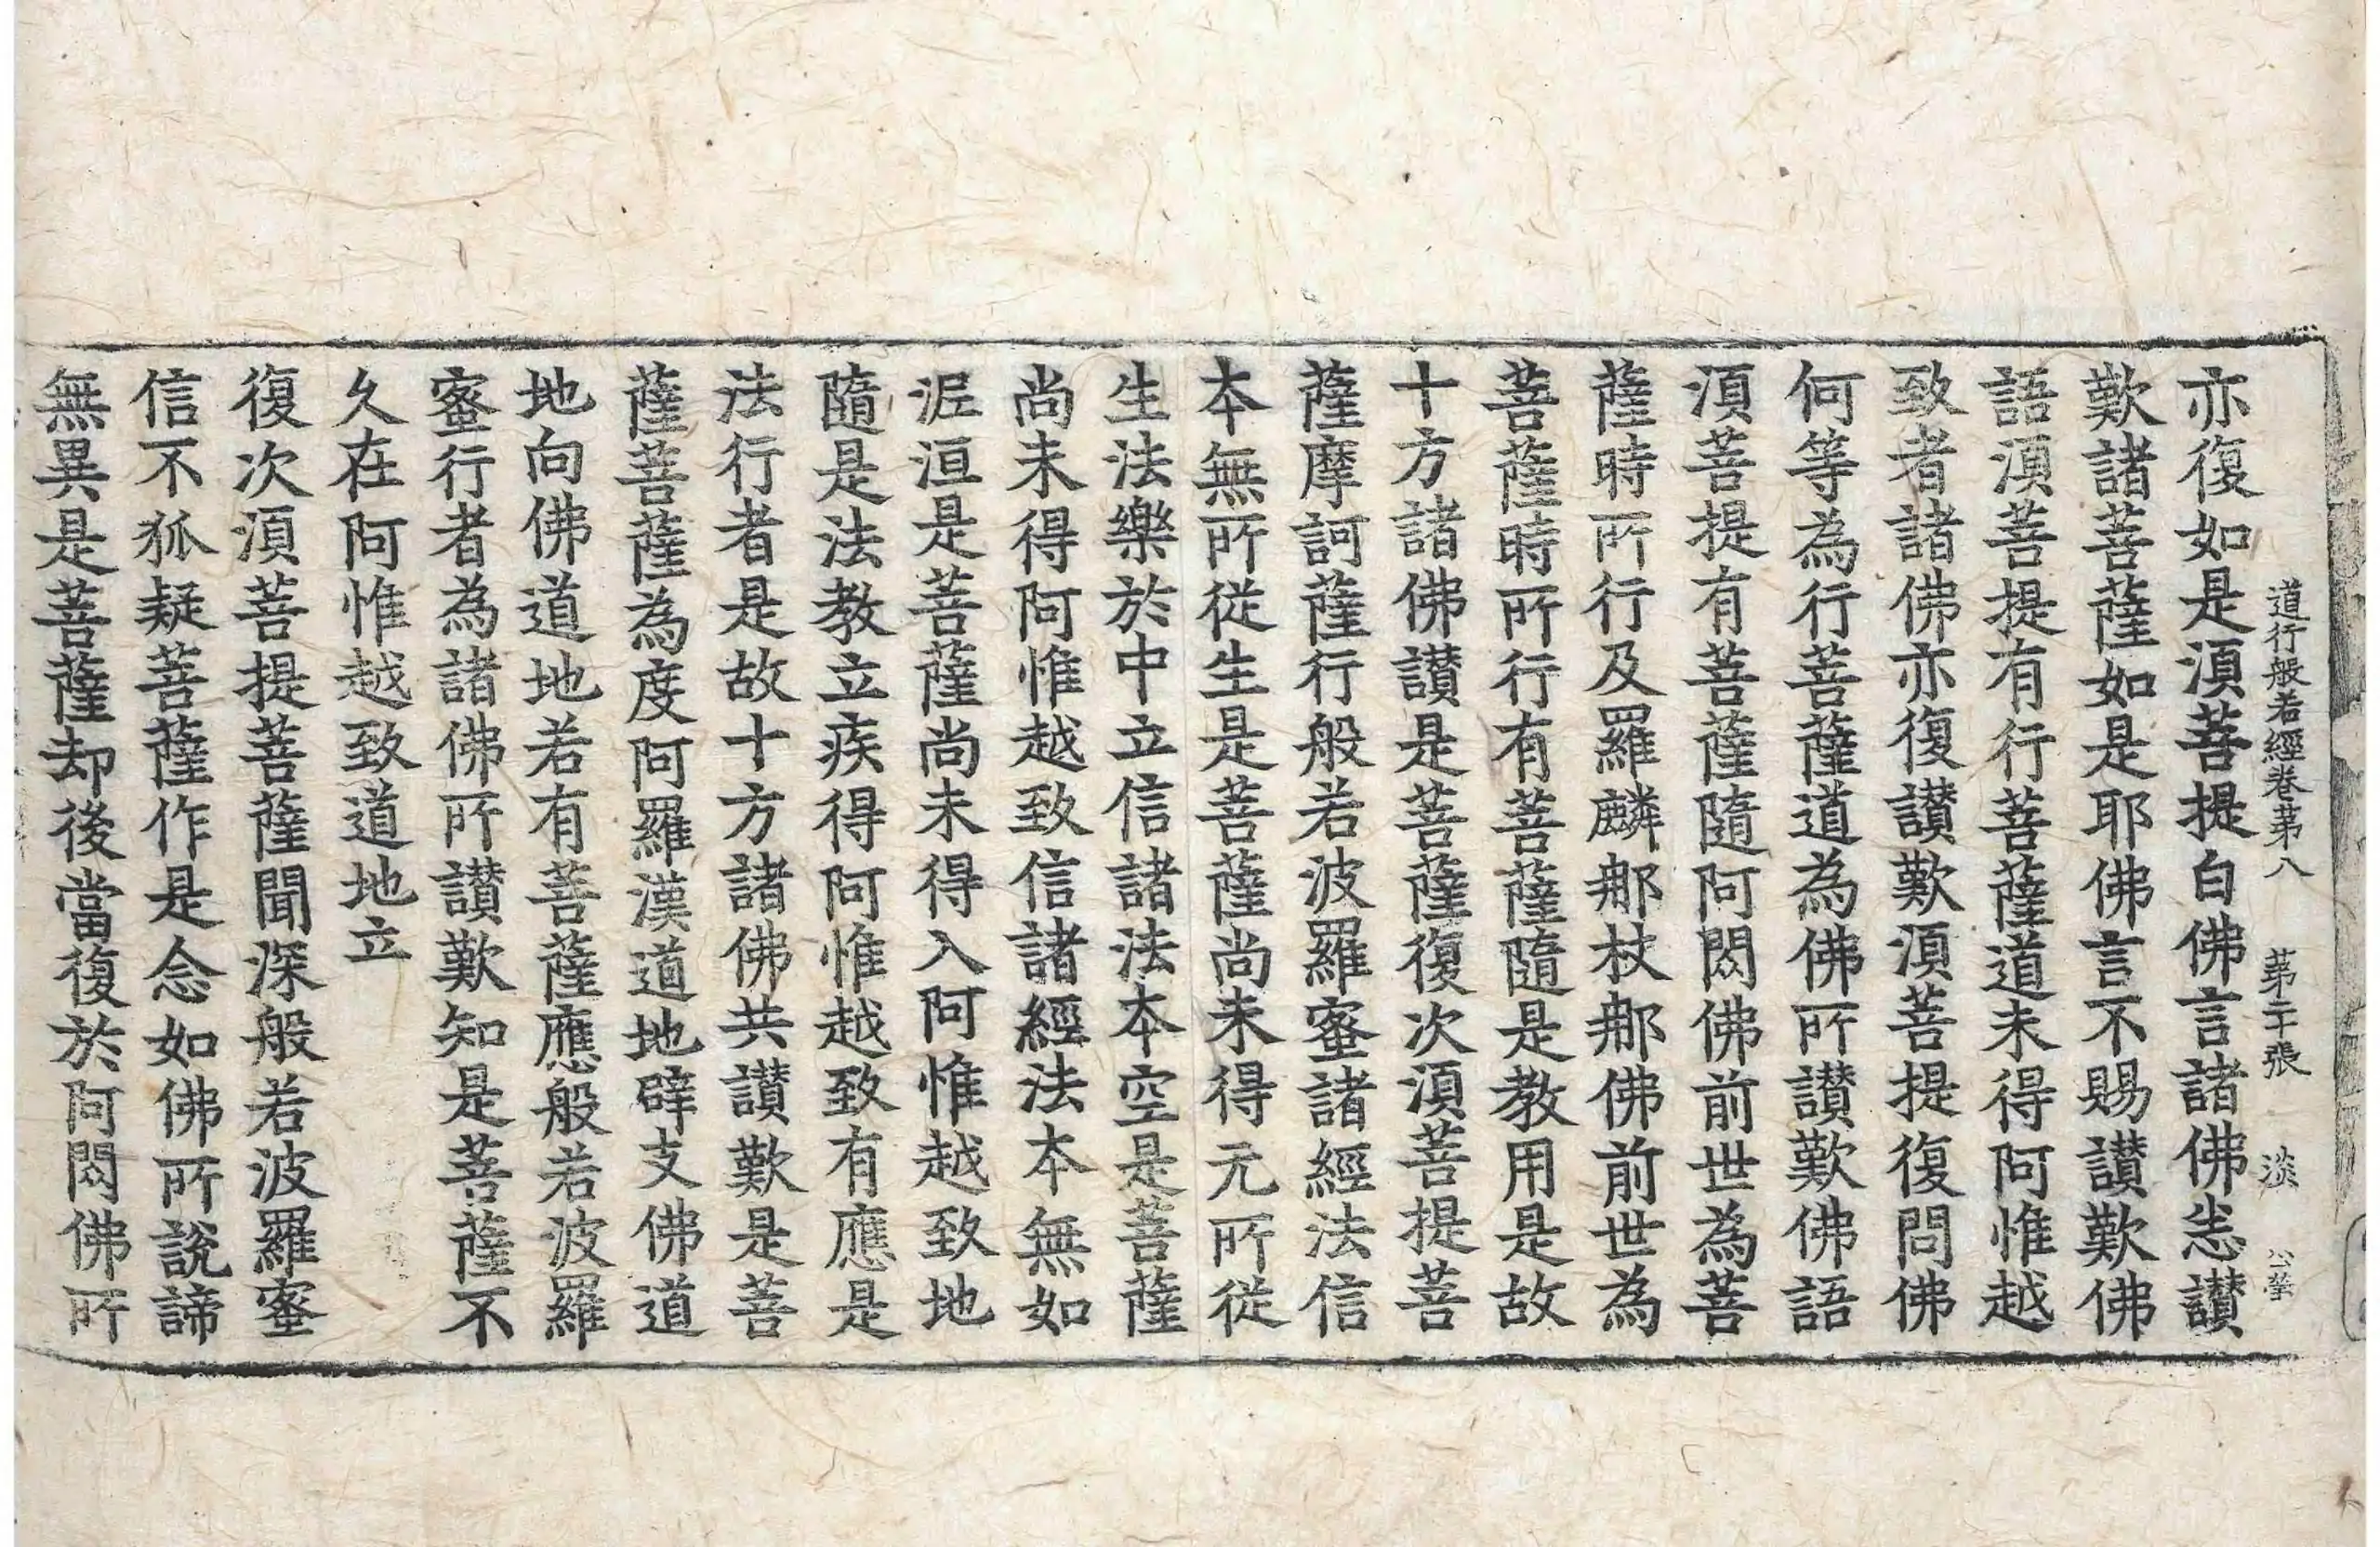 道行般若經卷第八 第二十張 淡
亦復如是須菩提白佛言諸佛悉讃
歎諸菩薩如是耶佛言不賜讃歎佛
語須菩提有行菩薩道未得阿惟越
致者諸佛亦復讃歎須菩提復問佛
何等為行菩薩道為佛所讃歎佛語
須菩提有菩薩隨阿閦佛前世為菩
薩時所行及羅麟那杖那佛前世為
菩薩時所行有菩薩隨是教用是故
十方諸佛讃是菩薩復次須菩提菩
薩摩訶薩行般若波羅蜜諸經法信
本無所從生是菩薩尚未得元所從
生法樂於中立信諸法本空是菩薩
尚未得阿惟越致信諸經法本無如
泥洹是菩薩尚未得入阿惟越致地
隨是法教立疾得阿惟越致有應是
法行者是故十方諸佛共讃歎是菩
薩菩薩為度阿羅漢道地辟支佛道
地向佛道地若有菩薩應般若波羅
蜜行者為諸佛所讃歎知是菩薩不
久在阿惟越致道地立
復次須菩提菩薩聞深般若波羅蜜
信不狐疑菩薩作是念如佛所說諦
無異是菩薩却後當復於阿閦佛所